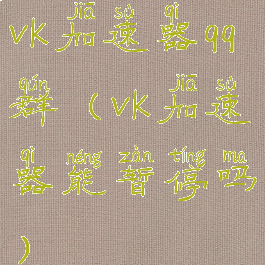 vk jiā sù qì
vk加速器qq
qún jiā sù
群（vk加速
qì néng zàn tíng ma
器能暂停吗
）